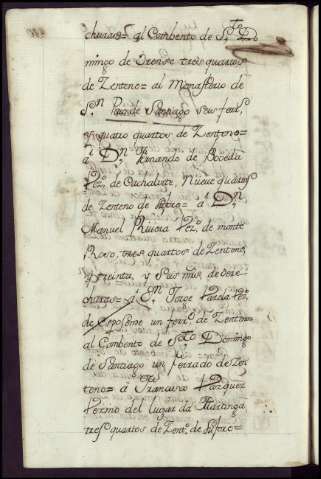 churas= al Combento de S.to Do
mingo de Orense tres quartos
de Zenteno= al Monasterio de
S.n de Santiago seis ferr.s
y quatro quartos de Zenteno=
a D.n Fernando de Boceda
Vez.o de Nueve quartos
de Zenteno de = a D.n
Manuel Riveira Vez.o de monte
Roso, tres quartos de Zenteno,
y treinta y seis mrs de dere
churas= a D.n Jorge Garcia Vez.o
de Esposende un ferr.o de Zenteno
al Combento de S.to Domingo
de Santiago un ferrado de Zen
teno= a Francisco Vazquez
Fermo del lugar da
tres quartos de Zent.o de